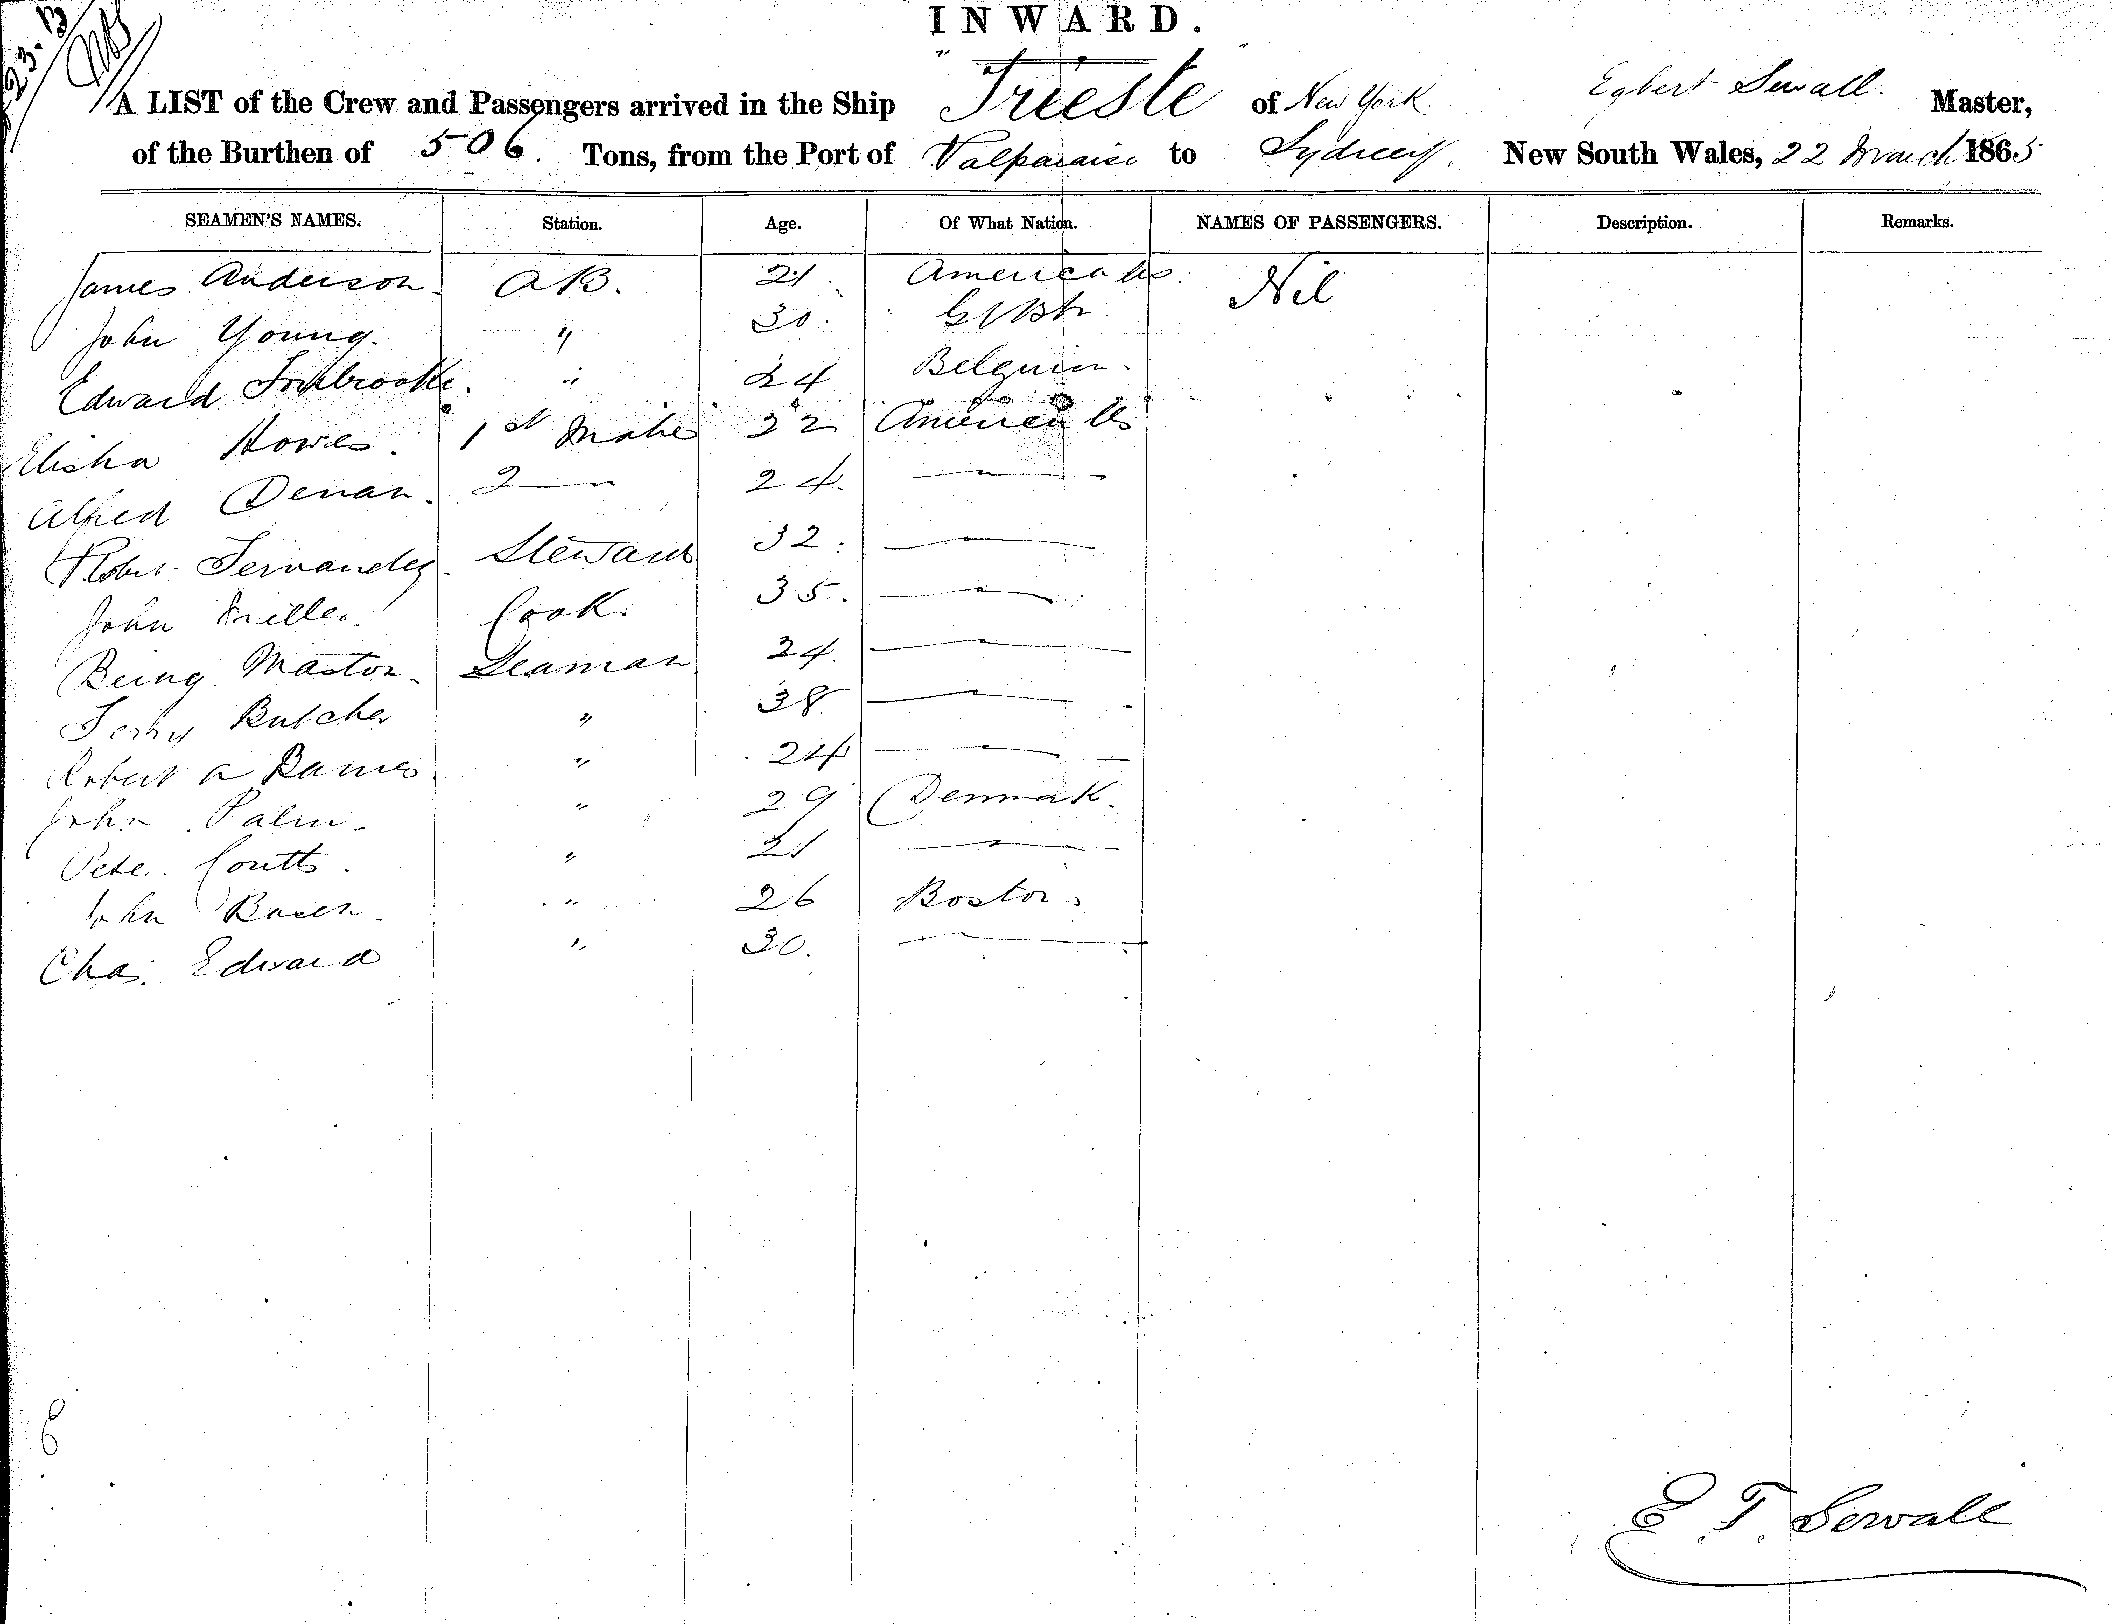 INWARD.
A LIST of the Crew and Passengers arrived in the Ship "Trieste" of New York Egbert Sewall. Master,
of the Burthen of 506. Tons, from the Port of Valparaiso to Sydney. New South Wales, 22 March 1865
SEAMEN'S NAMES. Station. Age. Of What Nation. NAMES OF PASSENGERS. Description. Remarks.
James Anderson. AB. 21 America Nil
John Young. " 30. G Btn
Edward " 24 Belguim.
Elisha Howes. 1st Mate 22 America
Alfred 2 — 24. —
Robt. Fernandez. Steward 32. —
John Miller. Cook. 35. —
Being Maston. Seaman 24. —
Butcher " 38 —
Robert a Barnes " 24 —
John Palm. " 29 Denmak.
Peter Coutts. " 21 —
John " 26 Boston.
Chas. Edward " 30. —
E. T. Sewall